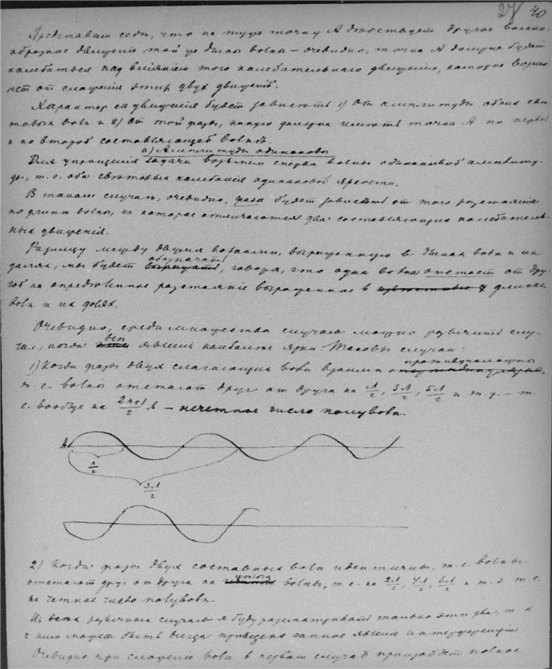 27 40
Представим себе, что на ту же точку А действует другое волно-
образное движение той же длины волны – очевидно, точка А должна будет
колебаться под влиянием того колебательного движения, которое возник-
нет от сложения этих двух движений.
Характер ея движения будет зависеть 1) от амплитуды обоих све-
товых волн и 2) от той фазы, какую должна иметь точка А по первой
и по второй составляющей волне.
а) Амплитуды одинаковы
Для упрощения задачи возьмем сперва волны одинаковой амплиту-
ды, т.е. оба световыя колебания одинаковой яркости.
В таком случае, очевидно, фаза будет зависеть от того расстояния
по длине волны, на которое отличаются два составляющие колебатель-
ныя движения.
Разницу между двумя волнами, выраженную в длинах волн и их
обозначать
долях, мы будем говоря, что одна волна отстает от дру-
гой на определенное расстояние выраженное в длинах
волн и их долях.
Очевидно, среди множества случаев можно различить слу-
чаи, когда явление наиболее ярки. Таковы случаи:
противуположны
1) Когда фазы двух слагающих волн взаимно
т.е. волны отстают друг от друга на λ/2, 3λ/2, 5λ/2 и т.д. – т.
е. вообще на 2n+1/2 λ – нечетное число полуволн.
А
λ/2
3λ/2
2) Когда фазы двух составных волн идентичны, т.е. волны
отстают друг от друга на волны, т.е. на 2λ/2, 4λ/2, 6λ/2 и т.д. т.е.
на четное число полуволн.
Из всех различных случаев я буду рассматривать только эти два, т.к.
к ним может быть всегда приведено данное явление интерференции
Очевидно при сложении волн в первом случае произойдет полное